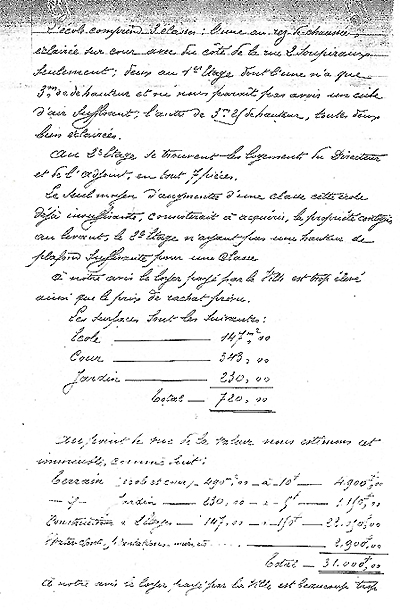 L'école comprend 3 classes : L'une au rez-de-chaussée,
éclairée sur cour avec du côté de la rue 2 soupiraux
seulement ; deux au 1er Etage dont l'une n'a que
3m de hauteur et ne nous paraît pas avoir un cube
d'air suffisant, l'autre de de hauteur, toutes deux
bien éclairées.
Au 2e Etage se trouvent les logements du Directeur
et de l'adjoint, en tout 7 pièces.
Le seul moyen d'augmenter d'une classe cette école
déjà insuffisante, consisterait à acquérir, la propriété
au levant, le 2e Etage n'ayant pas une hauteur de
plafond suffisante pour une classe
à notre avis le loyer payé par la Ville est trop élevé
ainsi que le prix de rachat prévu.
Les surfaces sont les suivantes :
Ecole — 147,m2 00
Cour — 343, 00
Jardin — 230, 00
Total — 720, 00
Au point de vue de la valeur nous estimons cet
immeuble, comme suit :
Terrain école et cour, 490m2 00 — à 10f — 4.900f,00
— d° — Jardin — 230, 00 — à 5f — 1.150f,00
Constructions à Etages — 147, 00 — à 150f — 22.050f,00
plantations, — 2.900f,00
Total — 31.000f,00
à notre avis le loyer payé par la Ville est beaucoup trop